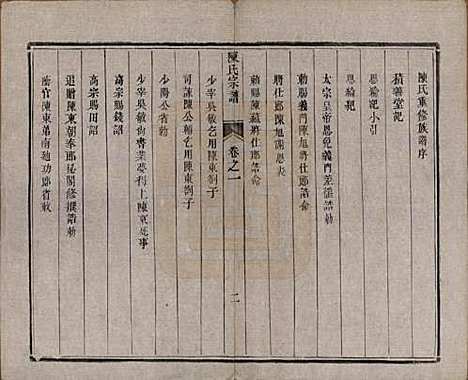 陳氏重修族譜序
積善堂記
恩綸記小引
恩綸記
太宗皇帝恩免義門差徭勅
勅賜義門陳旭將仕郎誥命
將仕郎陳旭謝恩表
勅賜陳蘊將仕郎誥命
陳氏宗譜
卷之一
二
少宰吳敏乞用陳東劄子
司諫陳公輔乞用陳東劄子
少陽公省勅
少宰吳敏尚書業夢得上陳東死事
高宗賜錢詔
高宗賜田詔
追贈陳東朝奉郎秘閣修撰誥勅
蔭官陳東弟南廸功郎省敕